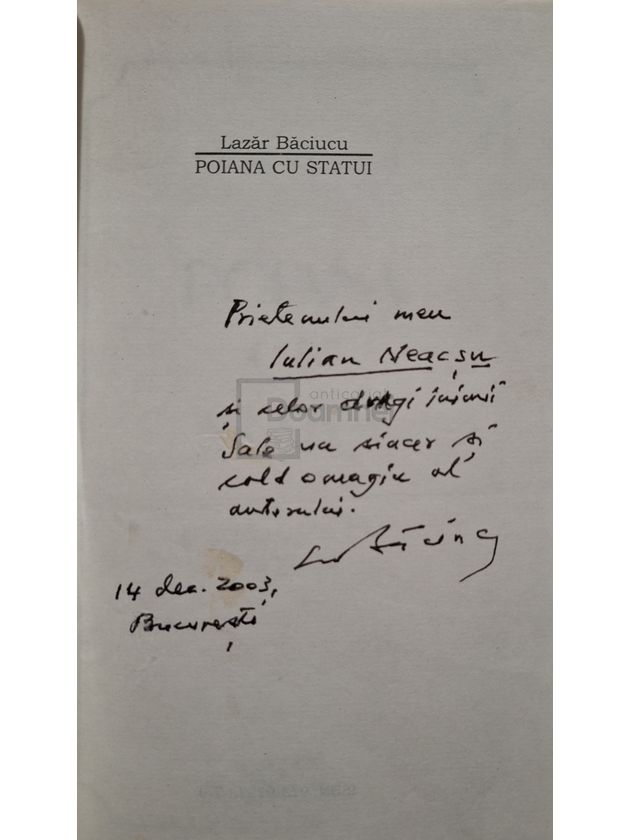 Lazăr Băciucu
POIANA CU STATUI
Prietenului meu
Iulian Neacșu
și celor dragi inimii
Sale un sincer și
cald omagiu al
autorului.
14 dec. 2003,
București
anticariat
Doamnei